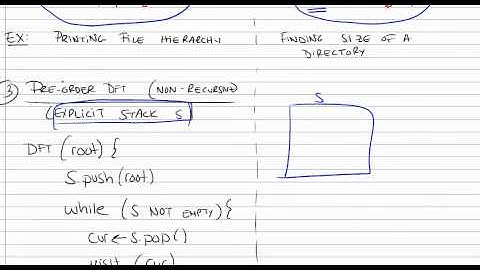 EX: PRINTING FILE HIERARCHY
FINDING SIZE OF A
DIRECTORY
3 PRE-ORDER DFT (NON-RECURSIVE)
(EXPLICIT STACK S)
S
DFT (root) {
S.push(root)
while (S NOT EMPTY) {
cur ← S.pop()
visit (cur)